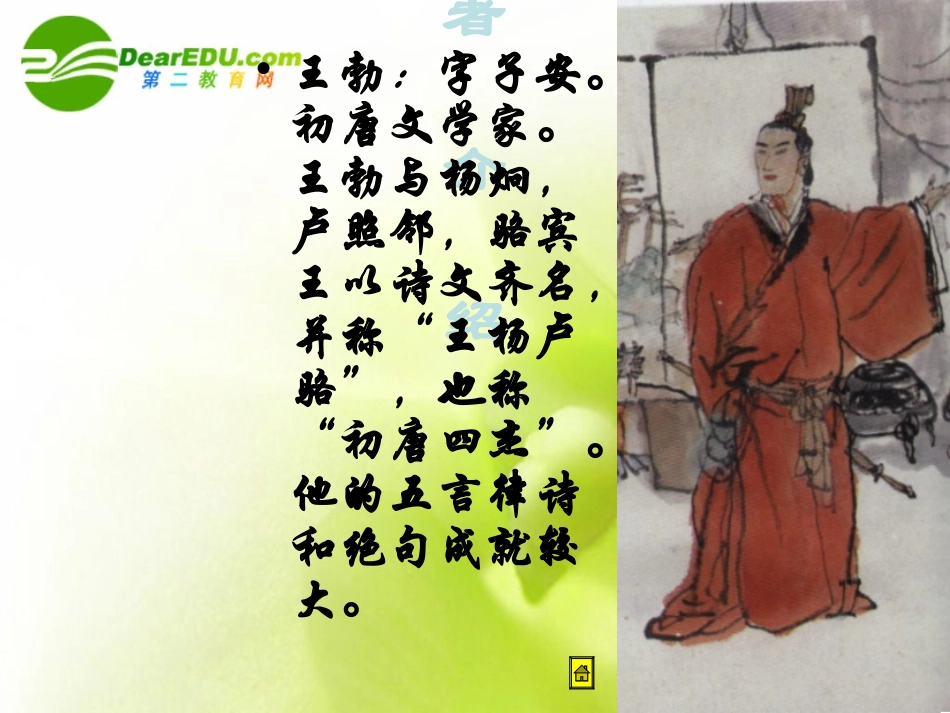 DearEDU.com
第二教育网
者
介
绍
• 王勃：字子安。
初唐文学家。
王勃与杨炯，
卢照邻，骆宾
王以诗文齐名，
并称“王杨卢
骆”，也称
“初唐四杰”。
他的五言律诗
和绝句成就较
大。